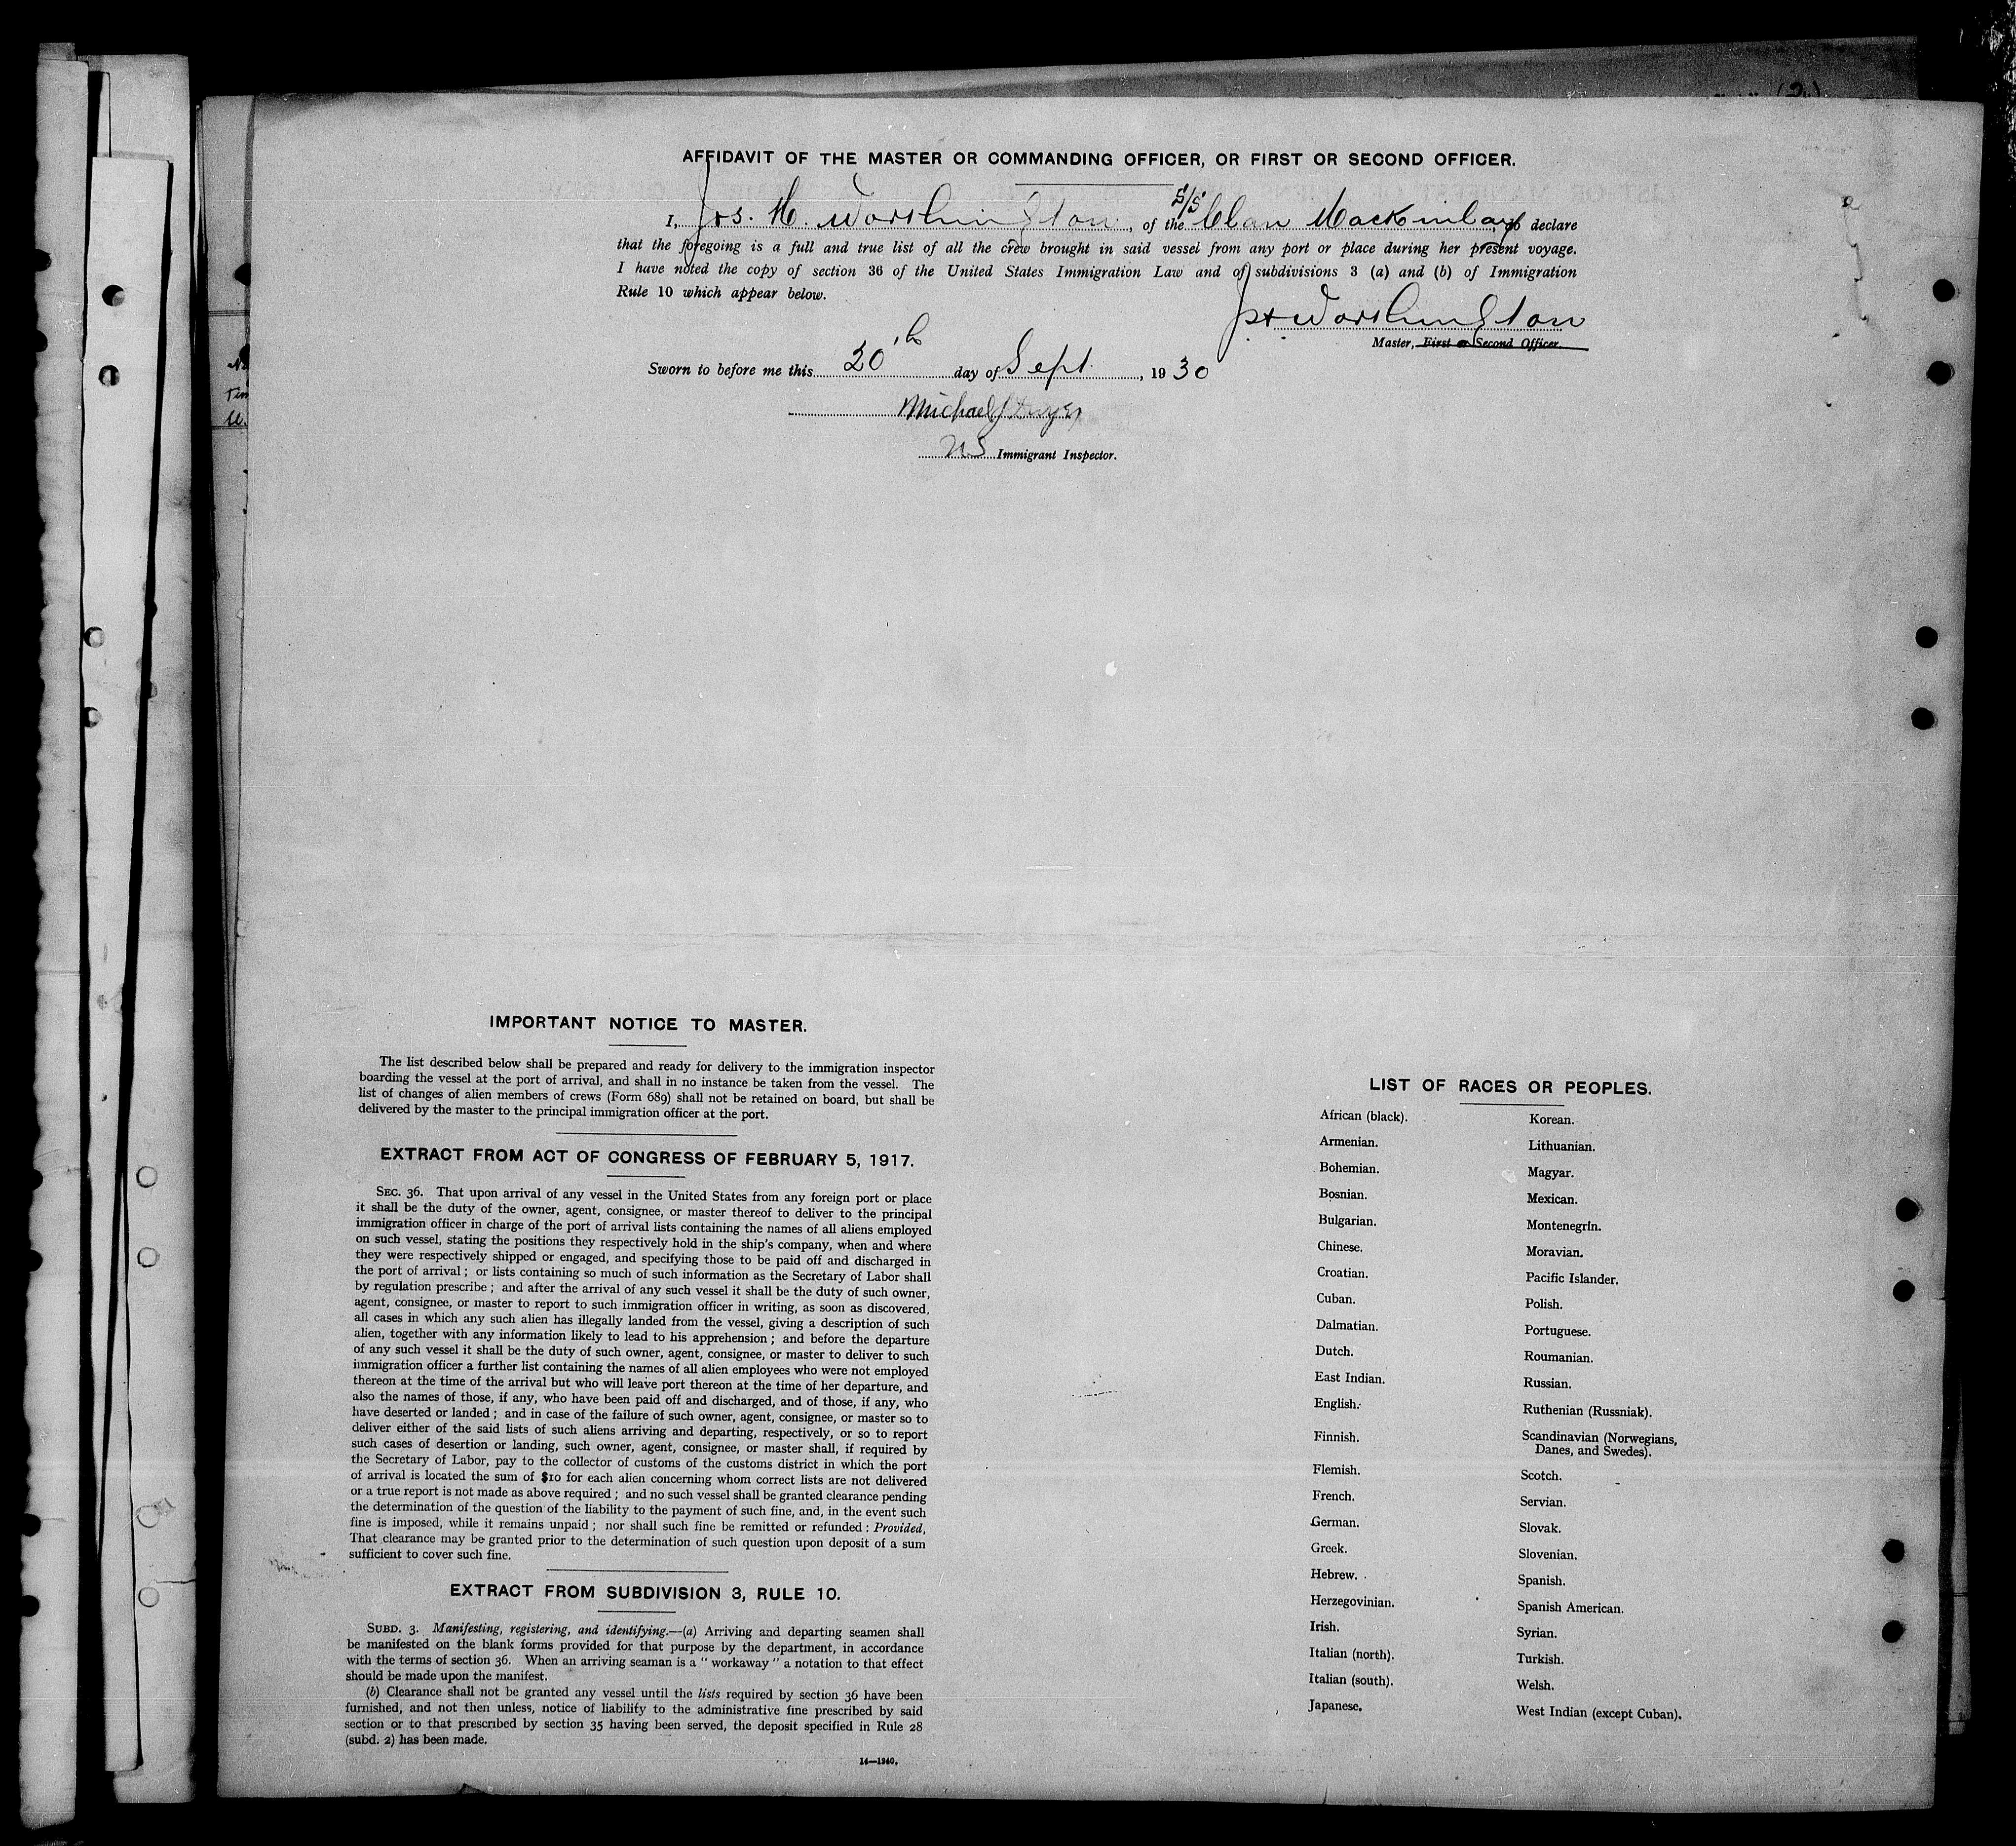 AFFIDAVIT OF THE MASTER OR COMMANDING OFFICER, OR FIRST OR SECOND OFFICER.
I, Jos. H. Worshington, of the S/S Clan Mackinlay, do declare
that the foregoing is a full and true list of all the crew brought in said vessel from any port or place during her present voyage.
I have noted the copy of section 36 of the United States Immigration Law and of subdivisions 3 (a) and (b) of Immigration
Rule 10 which appear below.
Worshington
Master, First or Second Officer.
Sworn to before me this 20th day of Sept, 1930
Michael J
US Immigrant Inspector.
IMPORTANT NOTICE TO MASTER.
The list described below shall be prepared and ready for delivery to the immigration inspector
boarding the vessel at the port of arrival, and shall in no instance be taken from the vessel. The
list of changes of alien members of crews (Form 689) shall not be retained on board, but shall be
delivered by the master to the principal immigration officer at the port.
EXTRACT FROM ACT OF CONGRESS OF FEBRUARY 5, 1917.
SEC. 36. That upon arrival of any vessel in the United States from any foreign port or place
it shall be the duty of the owner, agent, consignee, or master thereof to deliver to the principal
immigration officer in charge of the port of arrival lists containing the names of all aliens employed
on such vessel, stating the positions they respectively hold in the ship's company, when and where
they were respectively shipped or engaged, and specifying those to be paid off and discharged in
the port of arrival; or lists containing so much of such information as the Secretary of Labor shall
by regulation prescribe; and after the arrival of any such vessel it shall be the duty of such owner,
agent, consignee, or master to report to such immigration officer in writing, as soon as discovered,
all cases in which any such alien has illegally landed from the vessel, giving a description of such
alien, together with any information likely to lead to his apprehension; and before the departure
of any such vessel it shall be the duty of such owner, agent, consignee, or master to deliver to such
immigration officer a further list containing the names of all alien employees who were not employed
thereon at the time of the arrival but who will leave port thereon at the time of her departure, and
also the names of those, if any, who have been paid off and discharged, and of those, if any, who
have deserted or landed; and in case of the failure of such owner, agent, consignee, or master so to
deliver either of the said lists of such aliens arriving and departing, respectively, or so to report
such cases of desertion or landing, such owner, agent, consignee, or master shall, if required by
the Secretary of Labor, pay to the collector of customs of the customs district in which the port
of arrival is located the sum of $10 for each alien concerning whom correct lists are not delivered
or a true report is not made as above required; and no such vessel shall be granted clearance pending
the determination of the question of the liability to the payment of such fine, and, in the event such
fine is imposed, while it remains unpaid; nor shall such fine be remitted or refunded: Provided,
That clearance may be granted prior to the determination of such question upon deposit of a sum
sufficient to cover such fine.
EXTRACT FROM SUBDIVISION 3, RULE 10.
SUBD. 3. Manifesting, registering, and identifying.—(a) Arriving and departing seamen shall
be manifested on the blank forms provided for that purpose by the department, in accordance
with the terms of section 36. When an arriving seaman is a "workaway" a notation to that effect
should be made upon the manifest.
(b) Clearance shall not be granted any vessel until the lists required by section 36 have been
furnished, and not then unless, notice of liability to the administrative fine prescribed by said
section or to that prescribed by section 35 having been served, the deposit specified in Rule 28
(subd. 2) has been made.
14—1240.
LIST OF RACES OR PEOPLES.
African (black).
Armenian.
Bohemian.
Bosnian.
Bulgarian.
Chinese.
Croatian.
Cuban.
Dalmatian.
Dutch.
East Indian.
English.
Finnish.
Flemish.
French.
German.
Greek.
Hebrew.
Herzegovinian.
Irish.
Italian (north).
Italian (south).
Japanese.
Korean.
Lithuanian.
Magyar.
Mexican.
Montenegrin.
Moravian.
Pacific Islander.
Polish.
Portuguese.
Roumanian.
Russian.
Ruthenian (Russniak).
Scandinavian (Norwegians,
Danes, and Swedes).
Scotch.
Servian.
Slovak.
Slovenian.
Spanish.
Spanish American.
Syrian.
Turkish.
Welsh.
West Indian (except Cuban).